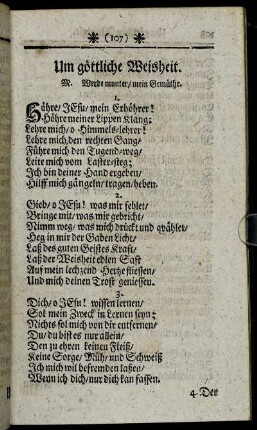 (107)
Um göttliche Weisheit.
M. Werde munter/ mein Gemüthe.
1.
Höhre/ JEsu/ mein Erhöhrer!
Höhre meiner Lippen Klang;
Lehre mich/ o Himmels-lehrer!
Lehre mich den rechten Gang/
Führe mich den Tugend-weg/
Leite mich vom Laster-steg;
Ich bin deiner Hand ergeben/
Hilff mich gängeln/ tragen/ heben.
2.
Gieb/ o JEsu! was mir fehlet/
Bringe mit/ was mir gebricht/
Nimm weg/ was mich drückt und qvählet/
Heg in mir der Gaben Licht/
Laß des guten Geistes Krafft/
Laß der Weisheit edlen Safft
Auf mein lechzend Hertze fliessen/
Und mich deinen Trost geniessen.
3.
Dich/ o JEsu! wissen lernen/
Sol mein Zweck in Lernen seyn;
Nichts sol mich von dir entfernen/
Du/ du bist es nur allein/
Den zu ehren keinen Fleiß/
Keine Sorge/ Müh/ und Schweiß
Ich mich wil befremden laßen/
Wenn ich dich/ nur dich kan fassen.
4. Der